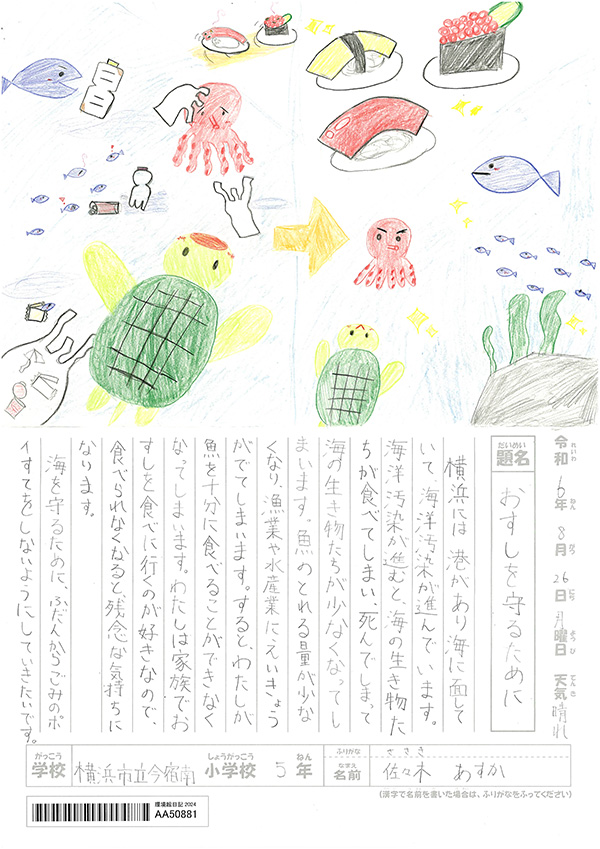 令和6年8月26日月曜日 天気晴れ
れいわ ねん がつ にち ようび てんき
だいめい
題名 おすしを守るために
横浜には港があり海に面して
いて、海洋汚染が進んでいます。
海洋汚染が進むと、海の生き物た
ちが食べてしまい、死んでしまって
海の生き物たちが少なくなってし
まいます。魚のとれる量が少な
くなり、漁業や水産業にえいきょう
がでてしまいます。すると、わたしが
魚を十分に食べることができなく
なってしまいます。わたしは家族でお
すしを食べに行くのが好きなので、
食べられなくなると、残念な気持ちに
なります。
海を守るために、ふだんからごみのポ
イすてをしないようにしていきたいです。
がっこう しょうがっこう ねん ふりがな ささき
学校 横浜市立今宿南 小学校 5年 なまえ 名前 佐々木 あすか
(漢字で名前を書いた場合は、ふりがなをふってください)
環境絵日記 2024
AA50881